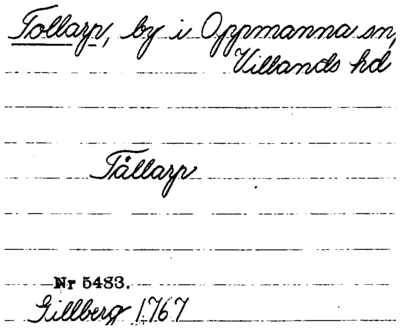 Tollarp, by i Oppmanna sn,
Villands hd
Tållarp
Nr 5483.
Gillberg 1767